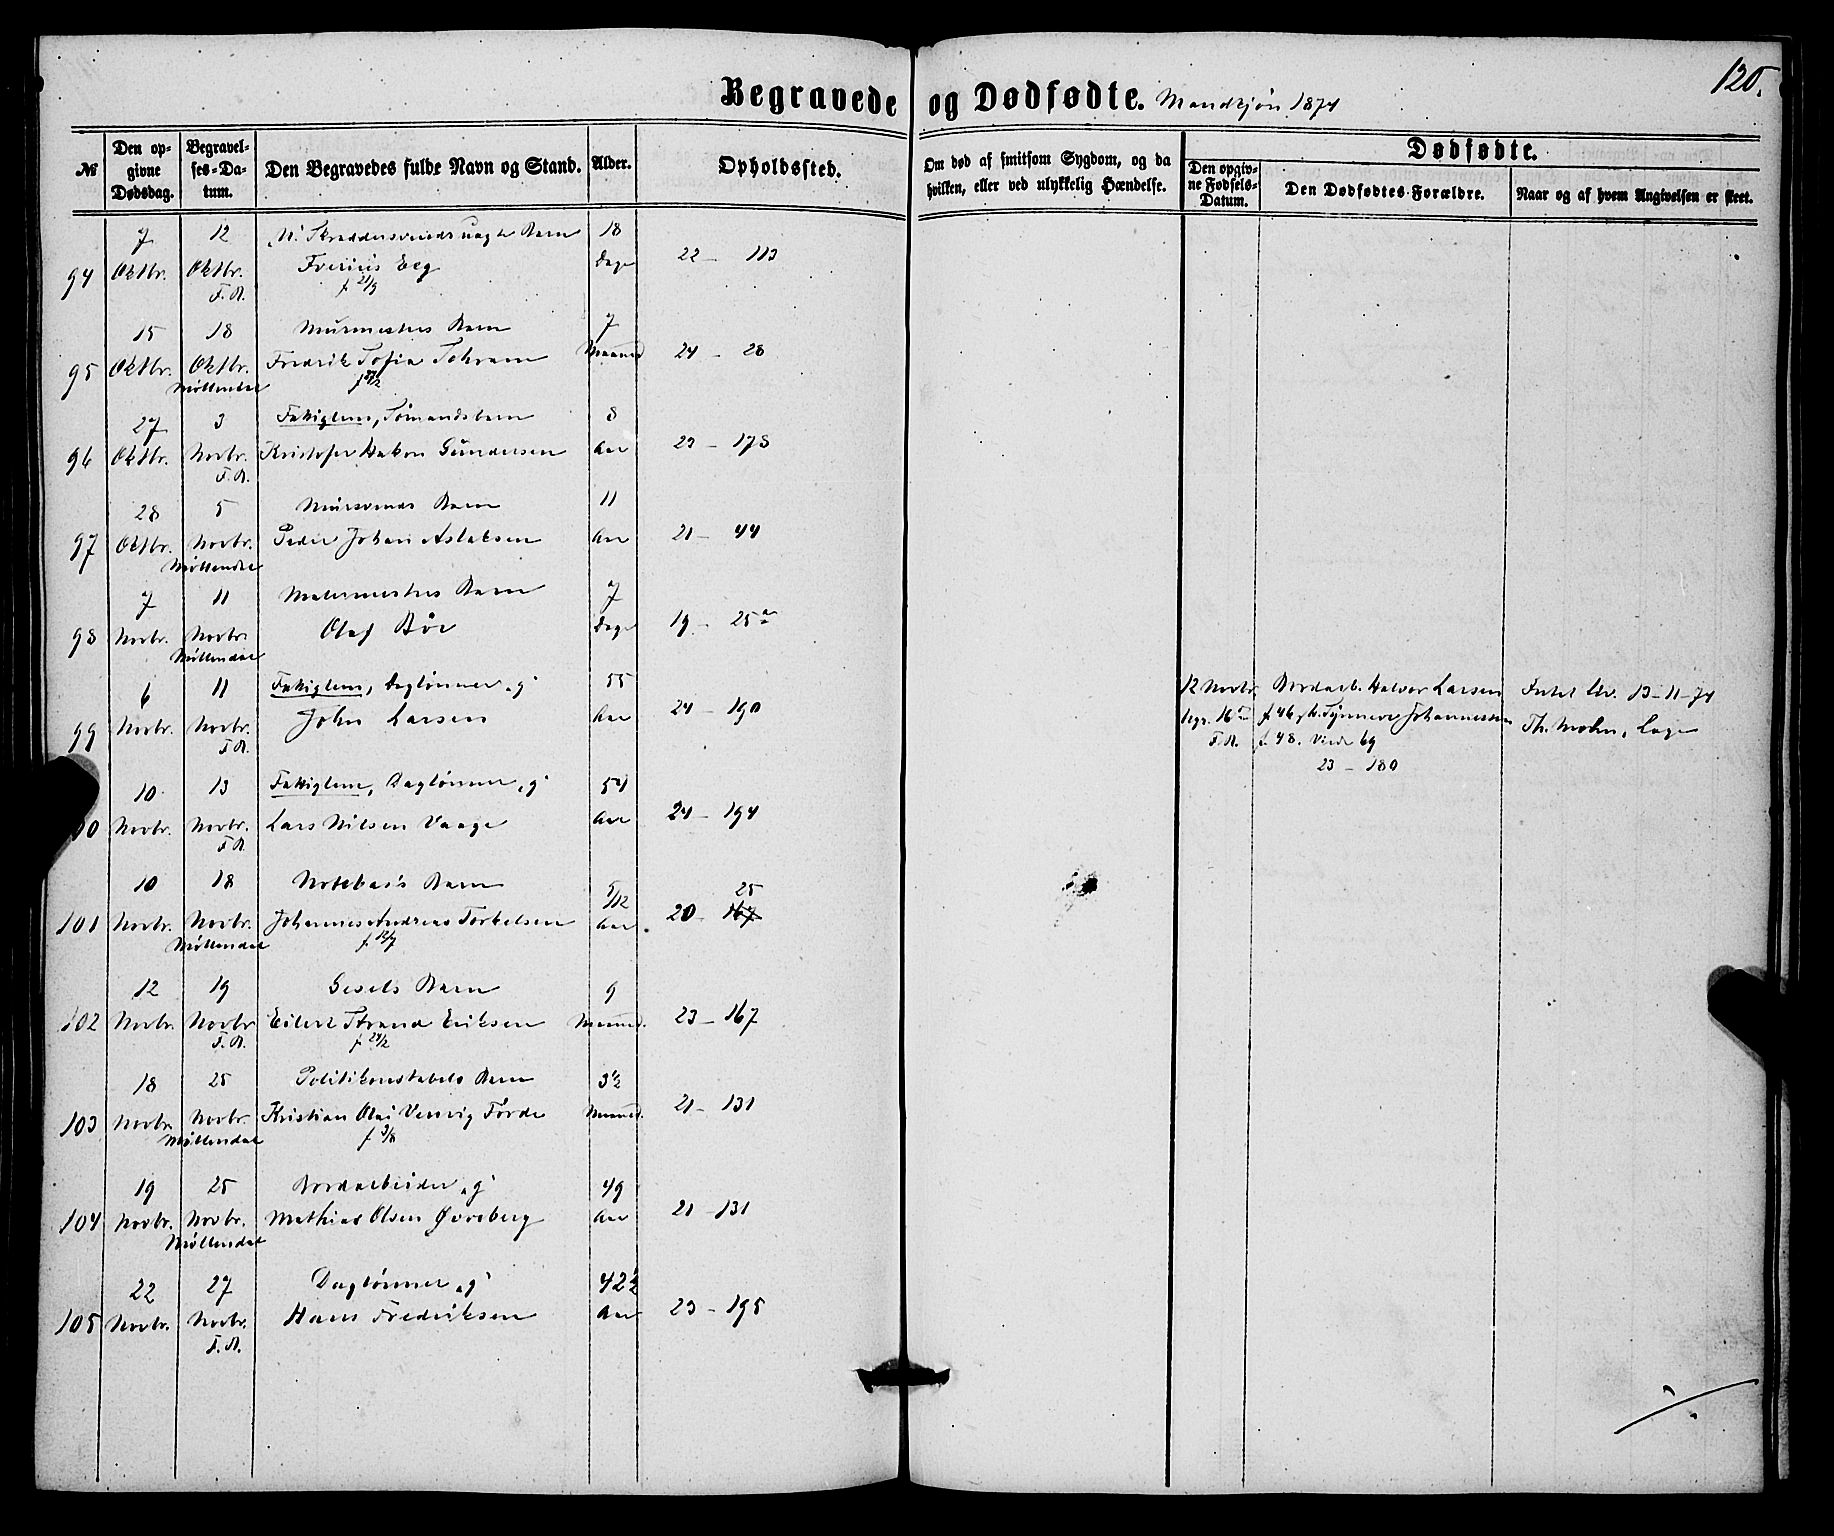 Begravede og Dødfødte. Mandkjøn 1874
120.
No
Den opgivne Dødsdag.
Begravelses-Datum.
Den Begravedes fulde Navn og Stand.
Alder.
Opholdssted.
Om død af smitsom Sygdom, og da hvilken, eller ved ulykkelig Hændelse.
Dødfødte.
Den opgivne Fødsels-Datum.
Den Dødfødtes Forældre.
Naar og af hvem Angivelsen er skeet.
7 12 Barn 18
94 Oktbr. Oktbr. Eeg Dage 22 - 113
F.A. f. 21/9
15 18 Murmesters Barn 7
95 Oktbr. Oktbr. Fredrik Tofia Maaned 24 - 28
Møllendal
27 3 Fattiglem, Sømandsbarn 8
96 Oktbr. Novbr. Kristofer Hakon Gundersen Aar 23 - 178
F.A.
28 5 Mursvends Barn 11
97 Oktbr. Novbr. Peder Johan Aslaksen Aar 21 - 44
Møllendal
7 11 Malermesters Barn 7
98 Novbr. Novbr. Olaf Bøe Dage 19 - 25a
Møllendal
6 11 Fattiglem, Daglønner "g" 55
99 Novbr. Novbr. John Larsen Aar 24 - 190
F.A.
12 Novbr. Bordarb. Halvor Larsen 13-11-74
begr. 16de f. 46 Johannessen Th. Mohn, Læge
F.A. f. 48. Viede 69
23 - 180
10 13 Fattiglem, Daglønner "g" 54
00 Novbr. Novbr. Lars Nilsen Vaage Aar 24 - 194
F.A.
10 18 Notebas's Barn 5/12 25
101 Novbr. Novbr. Johannes Andreas Torkelsen Aar 20 - 167
Møllendal f. 12/7
12 19 Gesels Barn 9
102 Novbr. Novbr. Eilert Strand Eriksen Maaned. 23 - 167
F.A. f. 24/2
18 25 Politikonstabels Barn 3½
103 Novbr. Novbr. Kristian Olai Førde Maaned. 21 - 131
Møllendal f. 3/8
19 25 Bordarbeider "g" 49
104 Novbr. Novbr. Mathias Olsen Aar 21 - 131
Møllendal
22 27 Daglønner "g" 42½
105 Novbr. Novbr. Hans Fredriksen Aar 23 - 195
F.A.